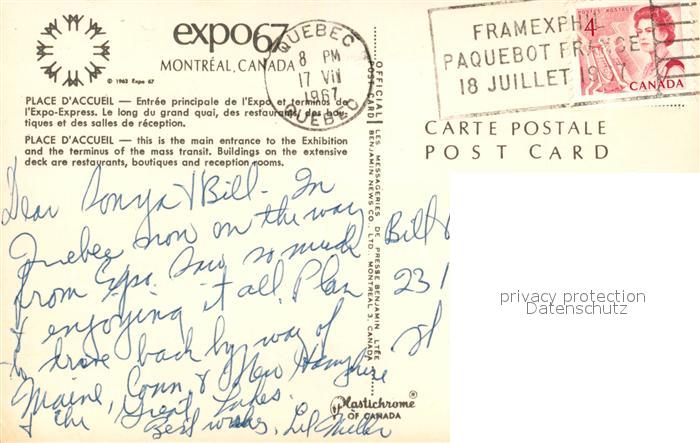 expo67
MONTRÉAL, CANADA
© 1963 Expo 67
PLACE D'ACCUEIL — Entrée principale de l'Expo et terminus de
l'Expo-Express. Le long du grand quai, des restaurants, des bou-
tiques et des salles de réception.
PLACE D'ACCUEIL — this is the main entrance to the Exhibition
and the terminus of the mass transit. Buildings on the extensive
deck are restaurants, boutiques and reception rooms.
QUEBEC
8 PM
17 VII
1967
QUEBEC
FRAMEXPHIL
PAQUEBOT FRANCE
18 JUILLET 1967
POSTES POSTAGE
4
CANADA
CARTE POSTALE
POST CARD
OFFICIAL POST CARD
LES MESSAGERIES DE PRESSE BENJAMIN LTÉE
BENJAMIN NEWS CO. LTD. MONTREAL 3, CANADA
Dear Sonya & Bill - In
Quebec now on the way
from Expo. so much
& enjoying it all. Plan
to drive back by way of
Maine, Conn & New Hampshire
& the Great Lakes.
Best wishes, Lil Miller
Bill &
23
St
privacy protection
Datenschutz
Plastichrome
OF CANADA